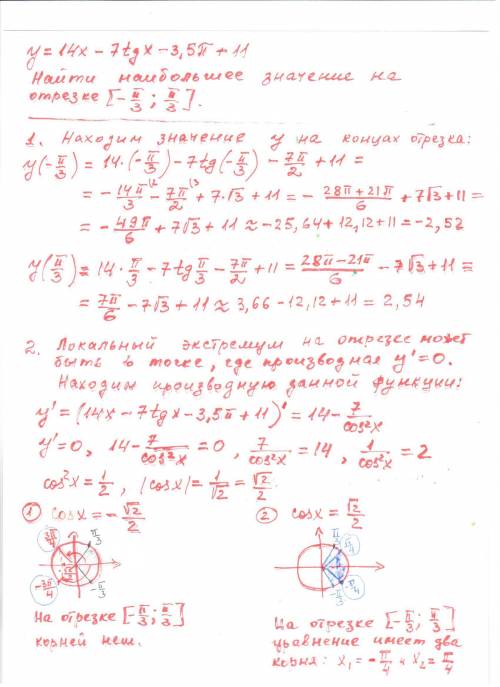 y = 14x - 7tgx - 3,5π + 11
Найти наибольшее значение на
отрезке [-π/3; π/3].
1. Находим значение y на концах отрезка:
y(-π/3) = 14·(-π/3) - 7tg(-π/3) - 7π/2 + 11 =
= -14π/3 - 7π/2 + 7·√3 + 11 = - (28π+21π)/6 + 7√3 + 11 =
= -49π/6 + 7√3 + 11 ≈ -25,64 + 12,12 + 11 = -2,52
y(π/3) = 14·π/3 - 7tgπ/3 - 7π/2 + 11 = (28π-21π)/6 - 7√3 + 11 =
= 7π/6 - 7√3 + 11 ≈ 3,66 - 12,12 + 11 = 2,54
2. Локальный экстремум на отрезке может
быть в точке, где производная y'=0.
Находим производную данной функции:
y' = (14x - 7tgx - 3,5π + 11)' = 14 - 7/cos²x
y'=0, 14 - 7/cos²x = 0, 7/cos²x = 14, 1/cos²x = 2
cos²x = 1/2, |cosx| = 1/√2 = √2/2
1 cosx = -√2/2
3π/4 π/3
-3π/4 -π/3
На отрезке [-π/3; π/3]
корней нет.
2 cosx = √2/2
π/3 π/4
-π/3 -π/4
На отрезке [-π/3; π/3]
уравнение имеет два
корня: x₁ = -π/4 и x₂ = π/4